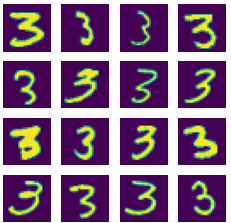 3 3 3 3
3 3 3 3
3 3 3 3
3 3 3 3